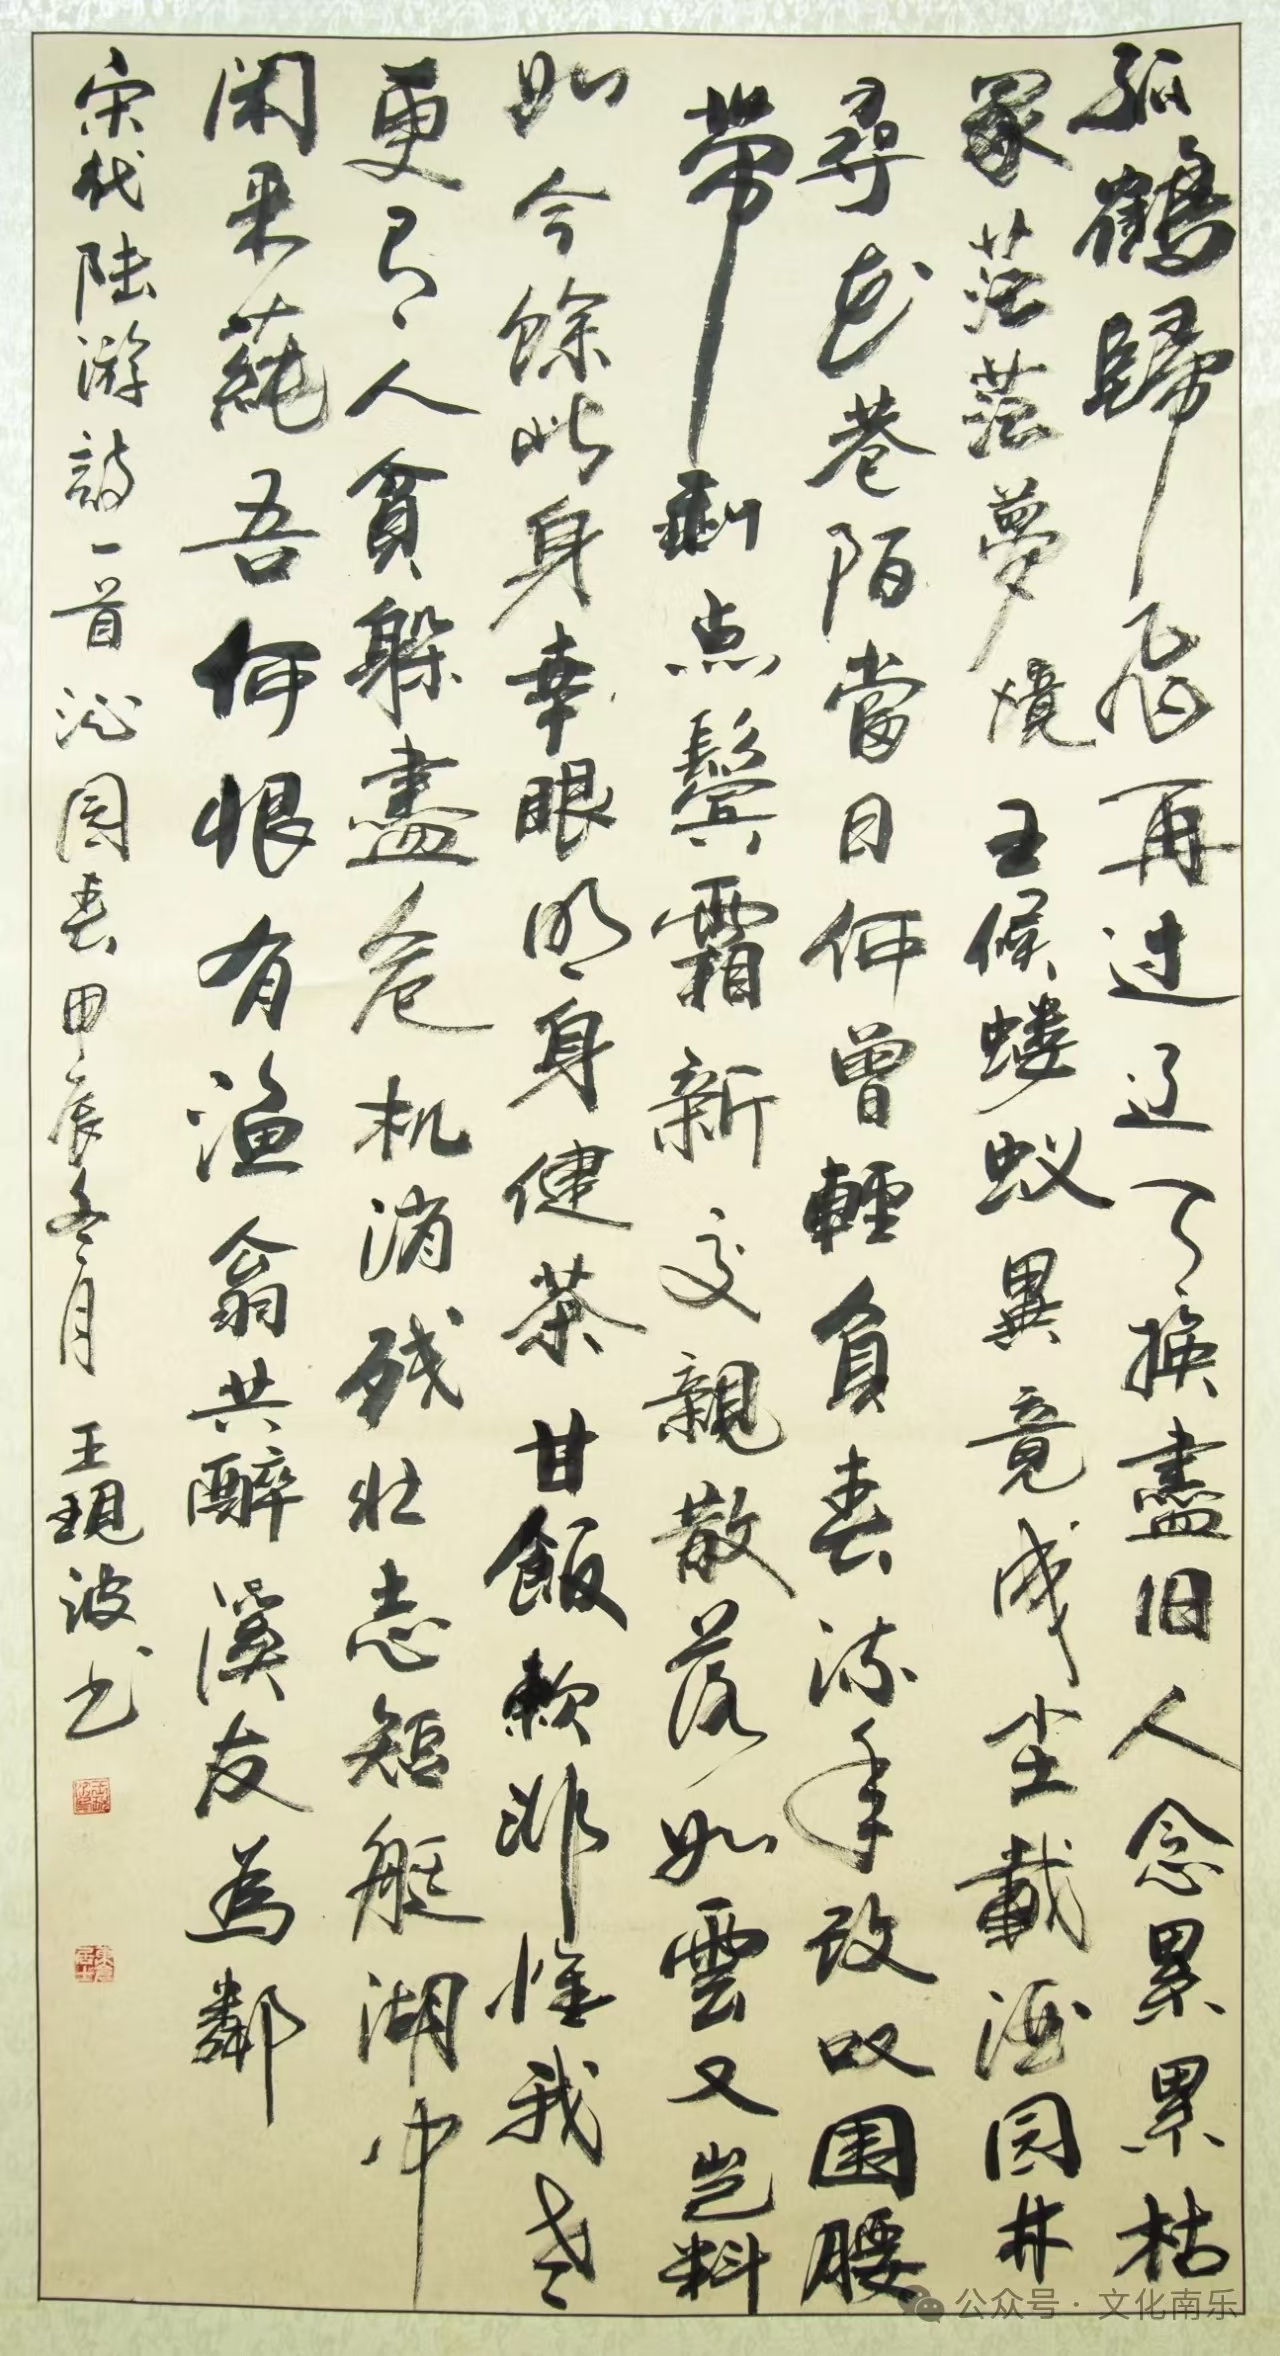 孤鹤歸飛再过辽天换盡旧人念累累枯
冢茫茫夢境王候蝼蚁畢竟成尘載酒园林
尋花巷陌當日何曾輕負春流年改叹围腰
带剩点鬓霜新交親散落如雲又岂料
如今餘此身幸眼明身健茶甘飯軟非惟我老
更有人貧躲盡危机消残壮志短艇湖中
闲来蒓吾何恨有渔翁共醉溪友為鄰
宋代陆游詩一首沁园春甲辰冬月王現波书
公众号·文化南乐